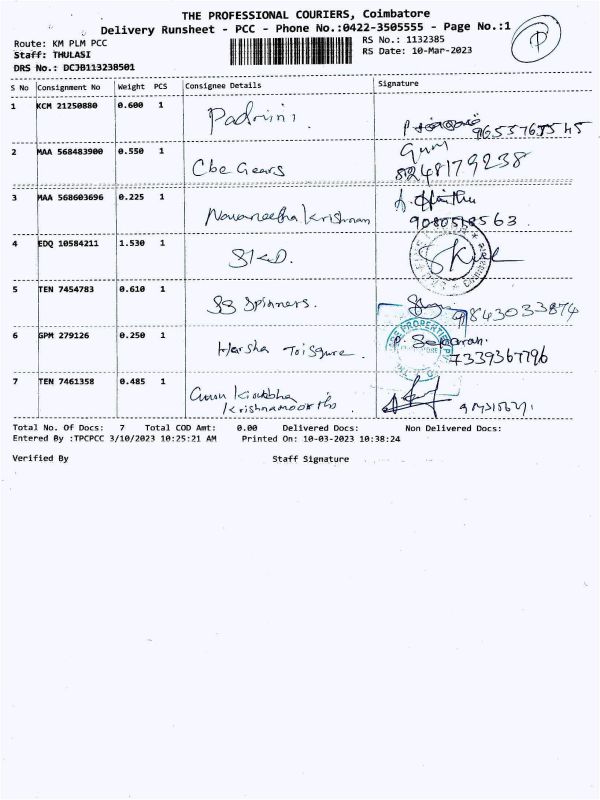 THE PROFESSIONAL COURIERS, Coimbatore
Delivery Runsheet - PCC - Phone No.:0422-3505555 - Page No.:1
P
Route: KM PLM PCC
RS No.: 1132385
Staff: THULASI
RS Date: 10-Mar-2023
DRS No.: DCJB113238501
S No Consignment No Weight PCS Consignee Details Signature
1 KCM 21250880 0.600 1 Padmini.
2 MAA 568483900 0.550 1 Cbe Gears
3 MAA 568603696 0.225 1 Navaneetha Krishnan
4 EDQ 10584211 1.530 1 SKD.
5 TEN 7454783 0.610 1 SB Spinners. 9843033874
6 GPM 279126 0.250 1 Harsha P. Sekaran.
7339367796
7 TEN 7461358 0.485 1
Krishnamoorthy
Total No. Of Docs: 7 Total COD Amt: 0.00 Delivered Docs: Non Delivered Docs:
Entered By :TPCPCC 3/10/2023 10:25:21 AM Printed On: 10-03-2023 10:38:24
Verified By Staff Signature